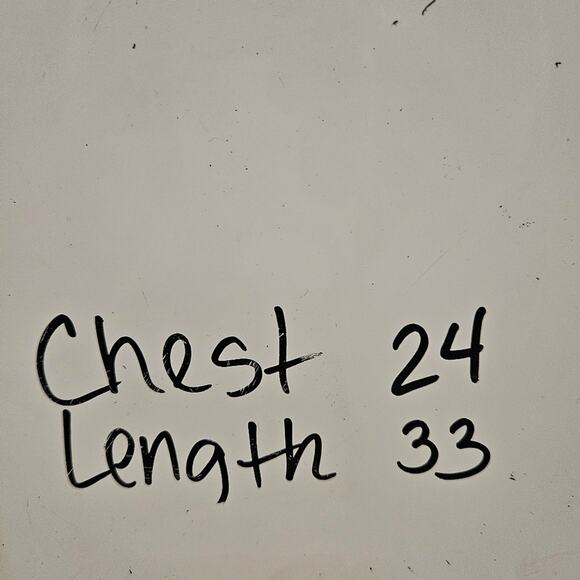 Chest 24
Length 33